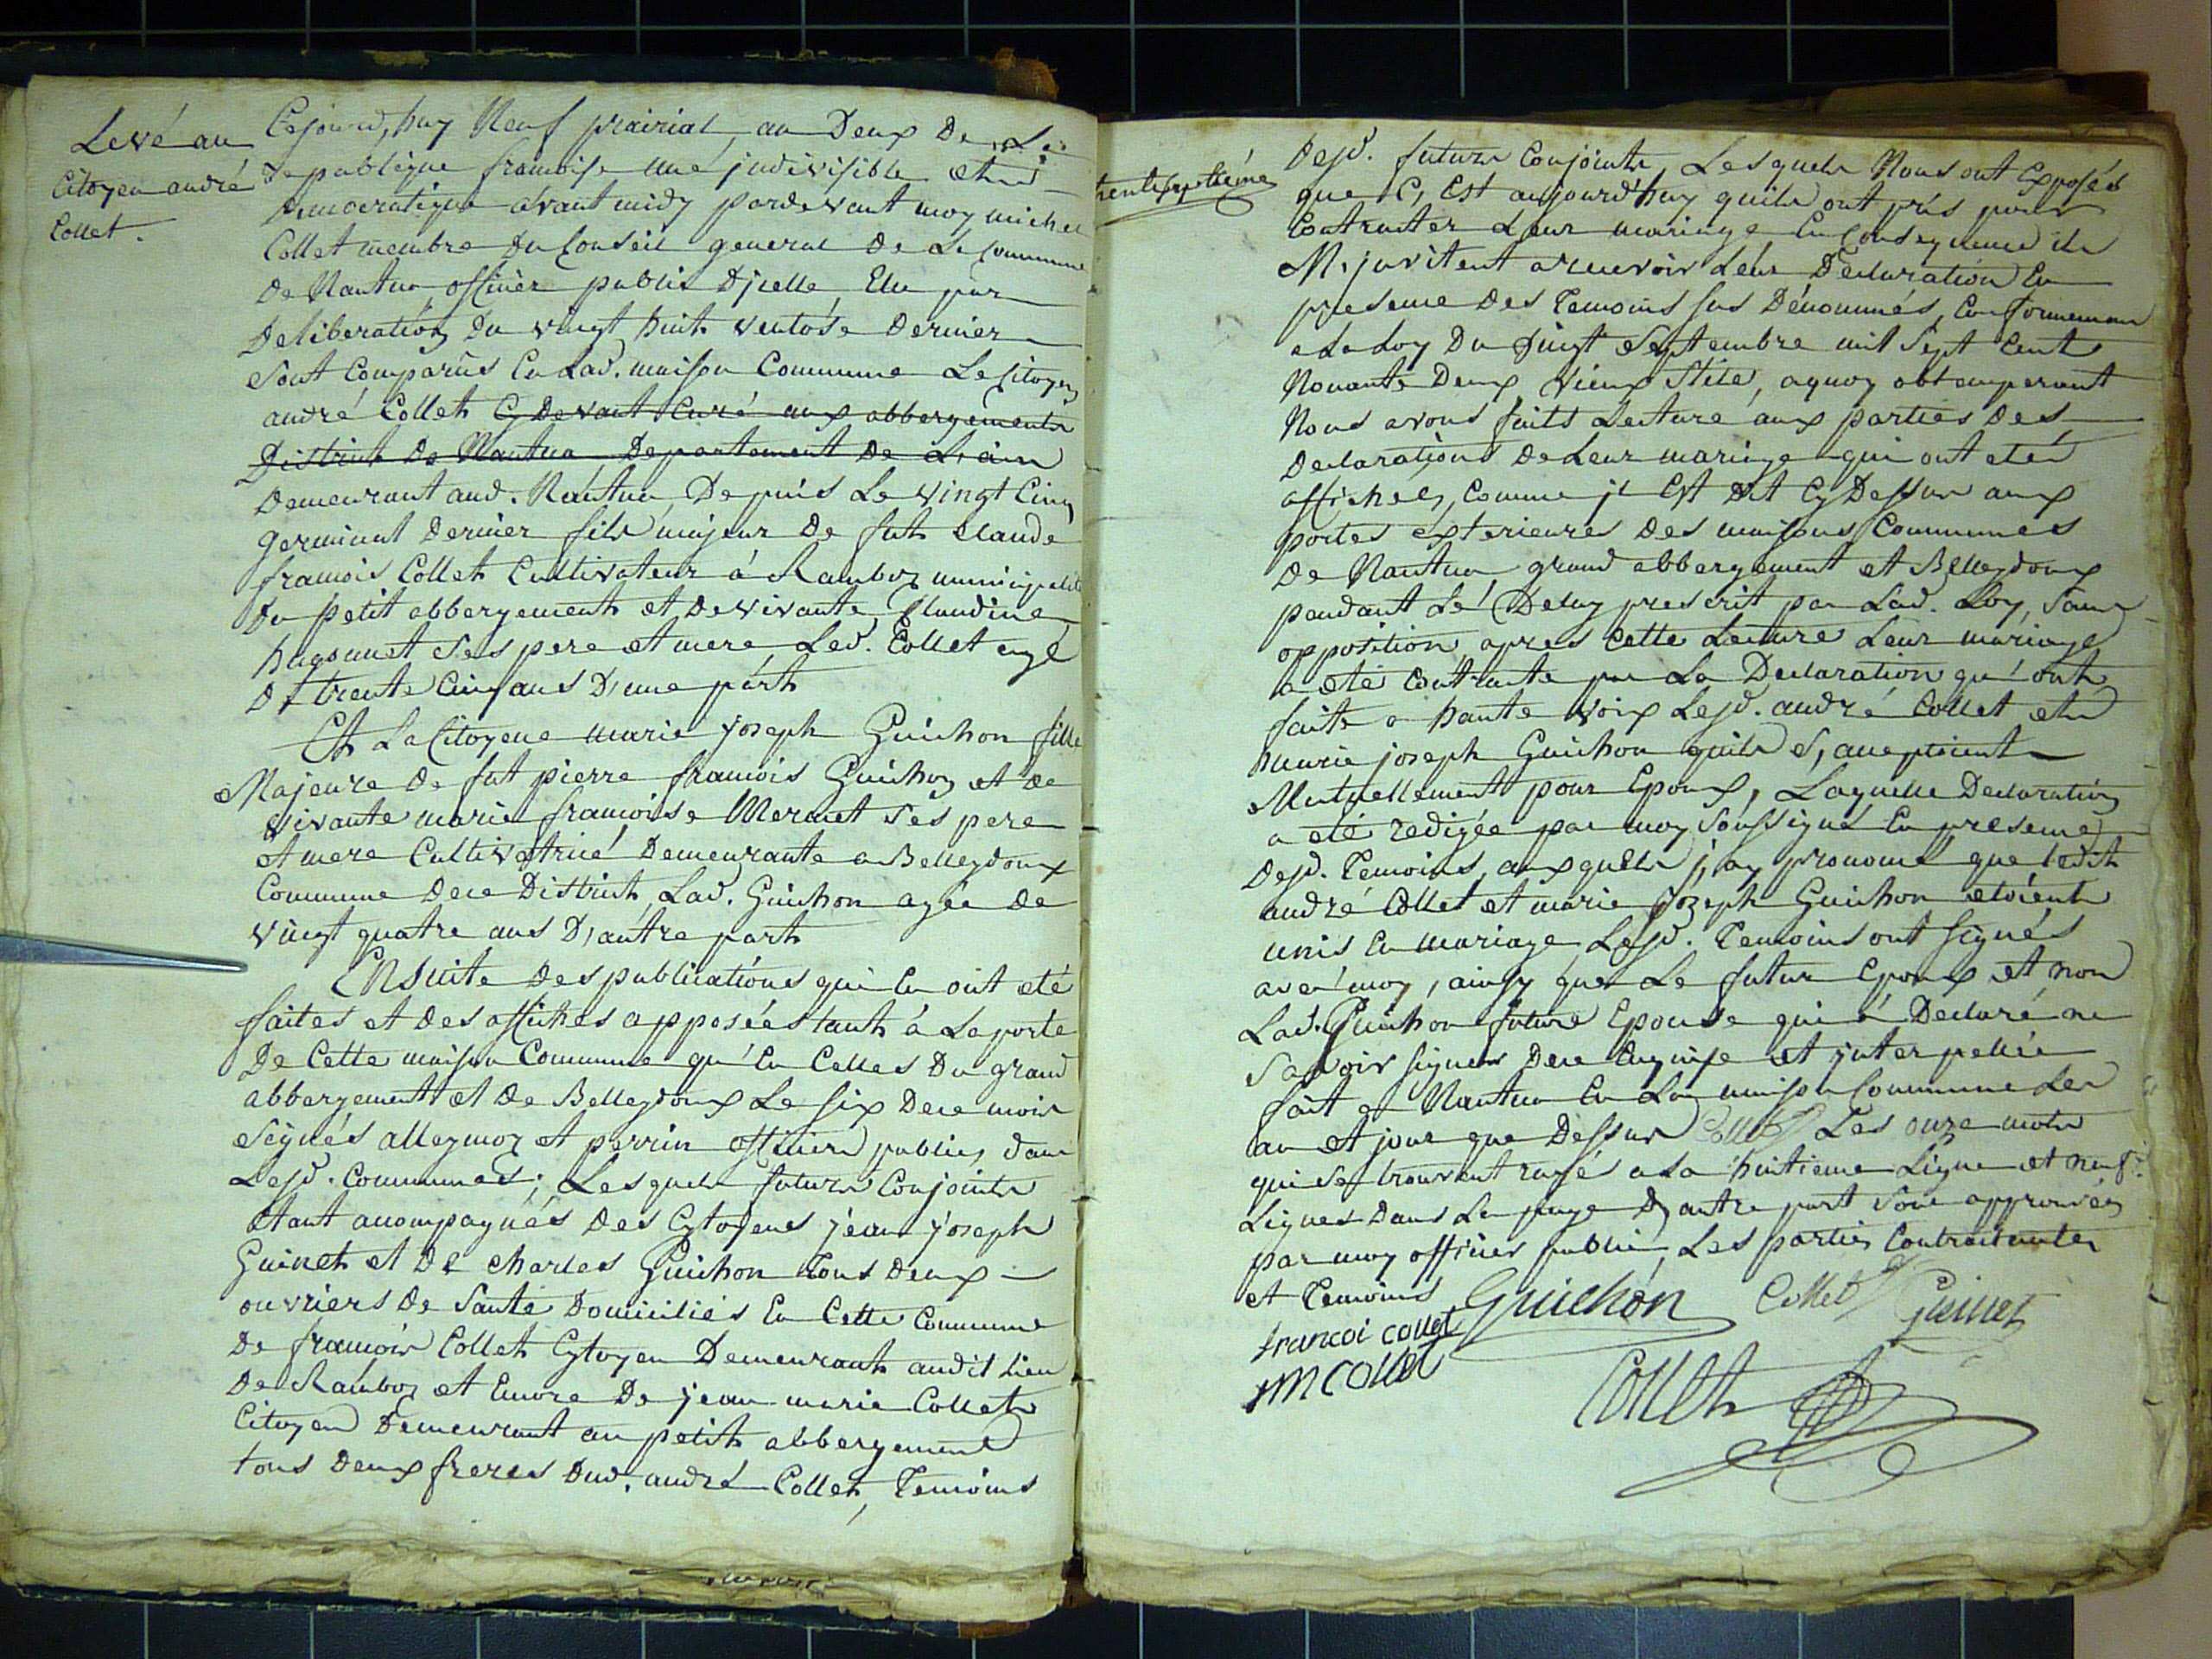 Levé au
Citoyen andré
Collet.
Cejourd,huy Neuf prairial, an Deux De La
Republique francoise une jndivisible et
democratique avant midy pardevant moy michel
Collet membre Du Conseil general De La Commune
De Nantua, officier public Djcelle, Elu par
Deliberation Du vingt huit ventose Dernier
Sont Comparûs En Lad. maison Commune Le Citoyen
andré Collet Cy Devant Curé aux abbergements
District De Nantua Departement De L'ain
Demeurant aud. Nantua, Depuis Le vingt Cinq
germinal Dernier fils majeur De fut Claude
francois Collet Cultivateur á Ramboz municipalité
Du petit abbergement et De vivante Claudine
hugonnet Ses pere et mere Led. Collet agé
De trente Cinq ans D'une part
Et La Citoyene marie joseph Guichon fille
Majeure De fut pierre francois Guichon et De
vivante marie francoise Mermet Ses pere
et mere Cultivatrice Demeurante a Belleydoux
Commune De ce District, Lad. Guichon agée De
vingt quatre ans D'autre part
Ensuite Des publications qui En ont eté
faites et Des affiches apposées tant á La porte
De Cette maison Commune qu'En Celles Du grand
abbergement et De Belleydoux Le Six De ce mois
Signés alleymoz et perrin officiers publics dans
Lesd. Communes; Lesquels futurs Conjoints
étant acompagnés Des Cytoyens jean joseph
Guinet et De charles Guichon tous deux
ouvriers De Santé Domiciliés En Cette Commune
De francois Collet Cytoyen Demeurant audit Lieu
De Ramboz et Encore De jean marie Collet
Citoyen Demeurant au petit abbergement
tous Deux freres Dud. andré Collet, Temoins
trente septiéme
Desd. futurs Conjoints, Lesquels Nous ont Exposés
que C'Est aujourd'huy quils ont pris pour
Contracter Leur mariage En Consequence ils
M'jnvitent a recevoir Leur Declaration En
presence Des Temoins sus Dénommés, Conformement
a La Loy Du vingt Septembre mil Sept Cent
Nonante Deux vieux Stile, aquoy obtemperant
Nous avons faits Lecture aux parties Des
Declarations De Leur mariage qui ont eté
affichées, Comme jl Est Dit Cy Dessus aux
portes éxterieures Des maisons Communes
De Nantua, grand abbergement et Belleydoux
pendant Le Delay prescrit par Lad. Loy, Sans
opposition, apres Cette Lecture Leur mariage
a eté Contracté par La Declaration qu'ont
faite a haute voix Lesd. andré Collet et
marie joseph Guichon quils S,acceptoient
Mutuellement pour Epoux, Laquelle Declaration
a eté redigée par moy Soussigné En presence
Desd. Temoins, auxquels j,ay prononcé que ledit
andré Collet et marie Jozeph Guichon etoient
unis En mariage Lesd. Temoins ont Signés
avec moy, ainsy que Le futur Epoux et non
Lad. Guichon future Epouse qui á Declaré ne
Savoir Signer De ce Enquise et jnterpellée
fait a Nantua En La maison Commune Les
an et jour que Dessus Collet Les onze mots
qui se trouvent rayé a La huitieme Ligne et neuf
Lignes Dans La page D'autre part Sont approuvés
par moy officier public, Les parties Contractantes
et Temoins
Guichon Collet Guinet
francoi collet
jm collet
Collet